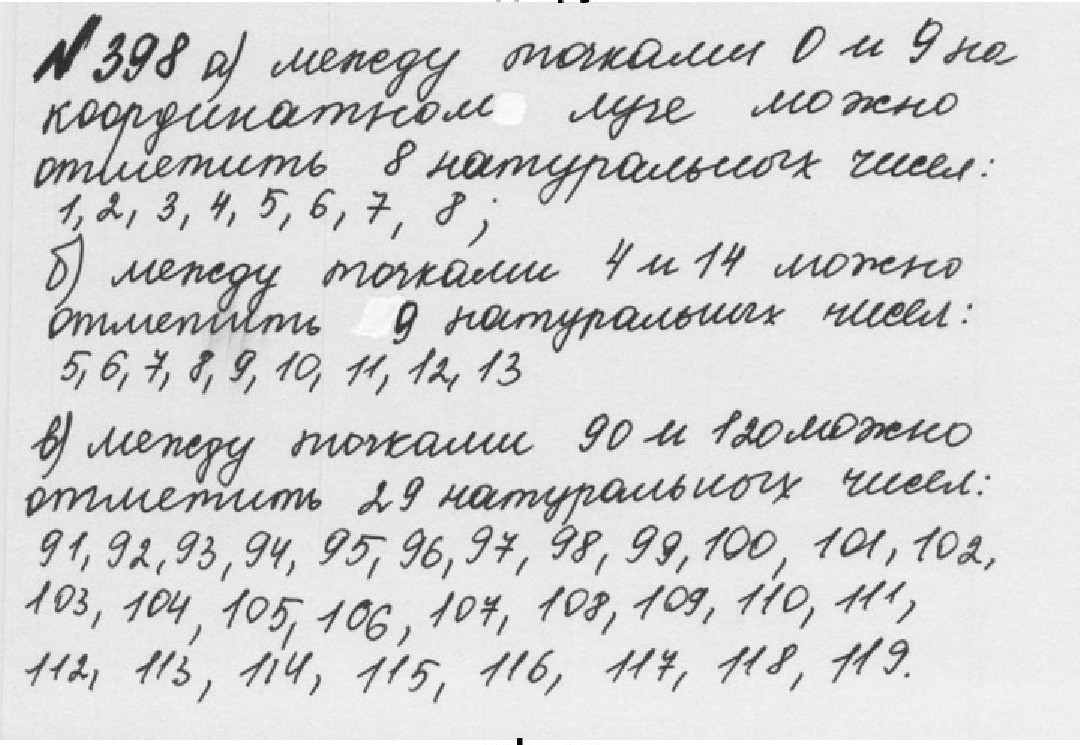 № 398 а) между точками 0 и 9 на
координатном луче можно
отметить 8 натуральных чисел:
1, 2, 3, 4, 5, 6, 7, 8;
б) между точками 4 и 14 можно
отметить 9 натуральных чисел:
5, 6, 7, 8, 9, 10, 11, 12, 13
в) между точками 90 и 120 можно
отметить 29 натуральных чисел:
91, 92, 93, 94, 95, 96, 97, 98, 99, 100, 101, 102,
103, 104, 105, 106, 107, 108, 109, 110, 111,
112, 113, 114, 115, 116, 117, 118, 119.